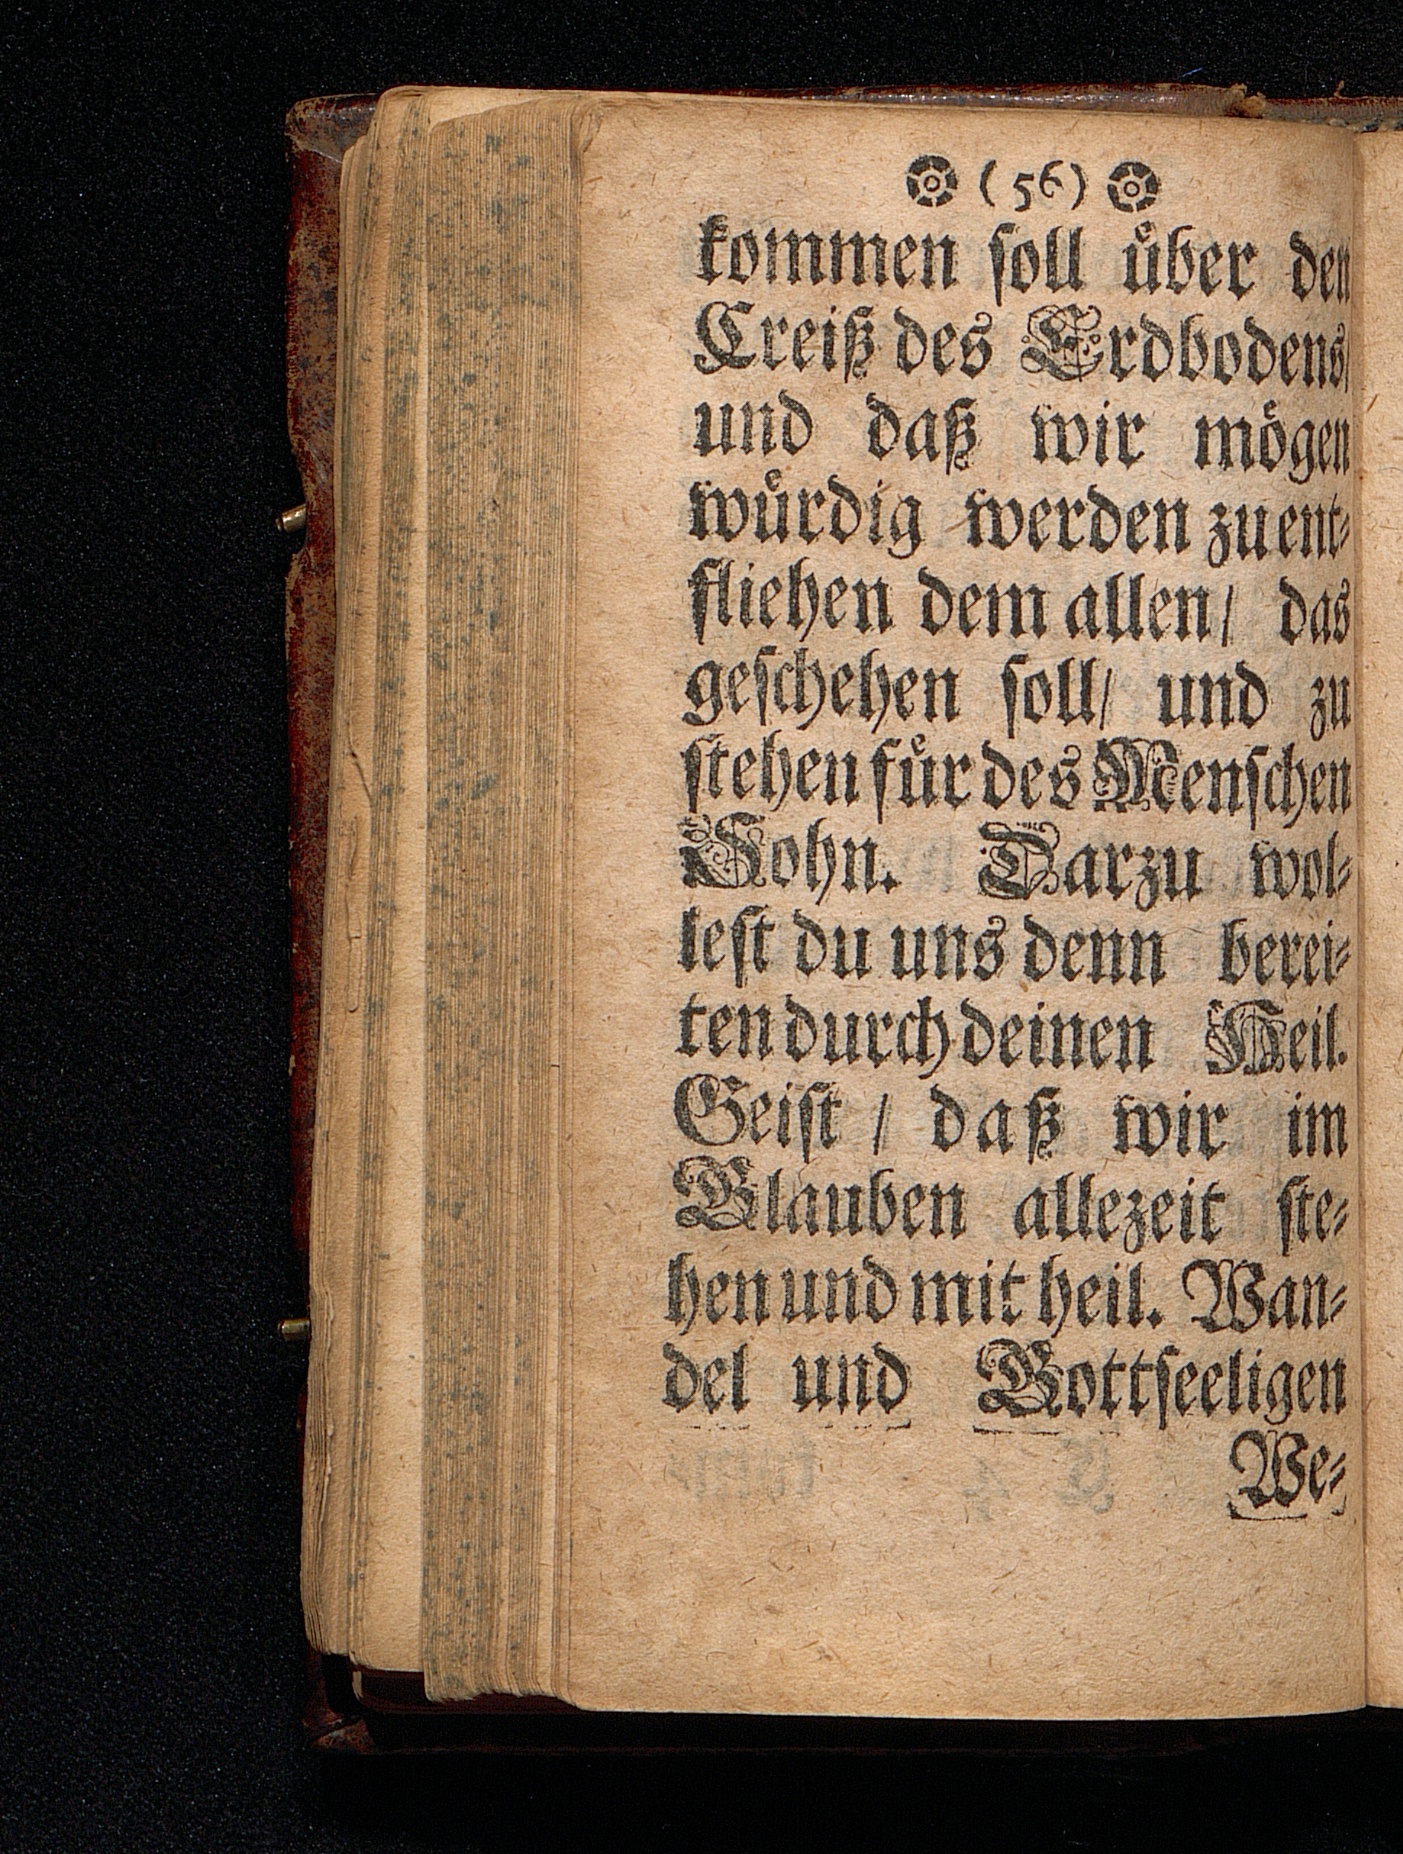 (56)
kommen soll über den
Creiß des Erdbodens/
und daß wir mögen
würdig werden zu ent-
fliehen dem allen/ das
geschehen soll/ und zu
stehen für des Menschen
Sohn. Darzu wol-
lest du uns denn berei-
ten durch deinen Heil.
Geist / daß wir im
Glauben allezeit ste-
hen und mit heil. Wan-
del und Gottseeligen
We-